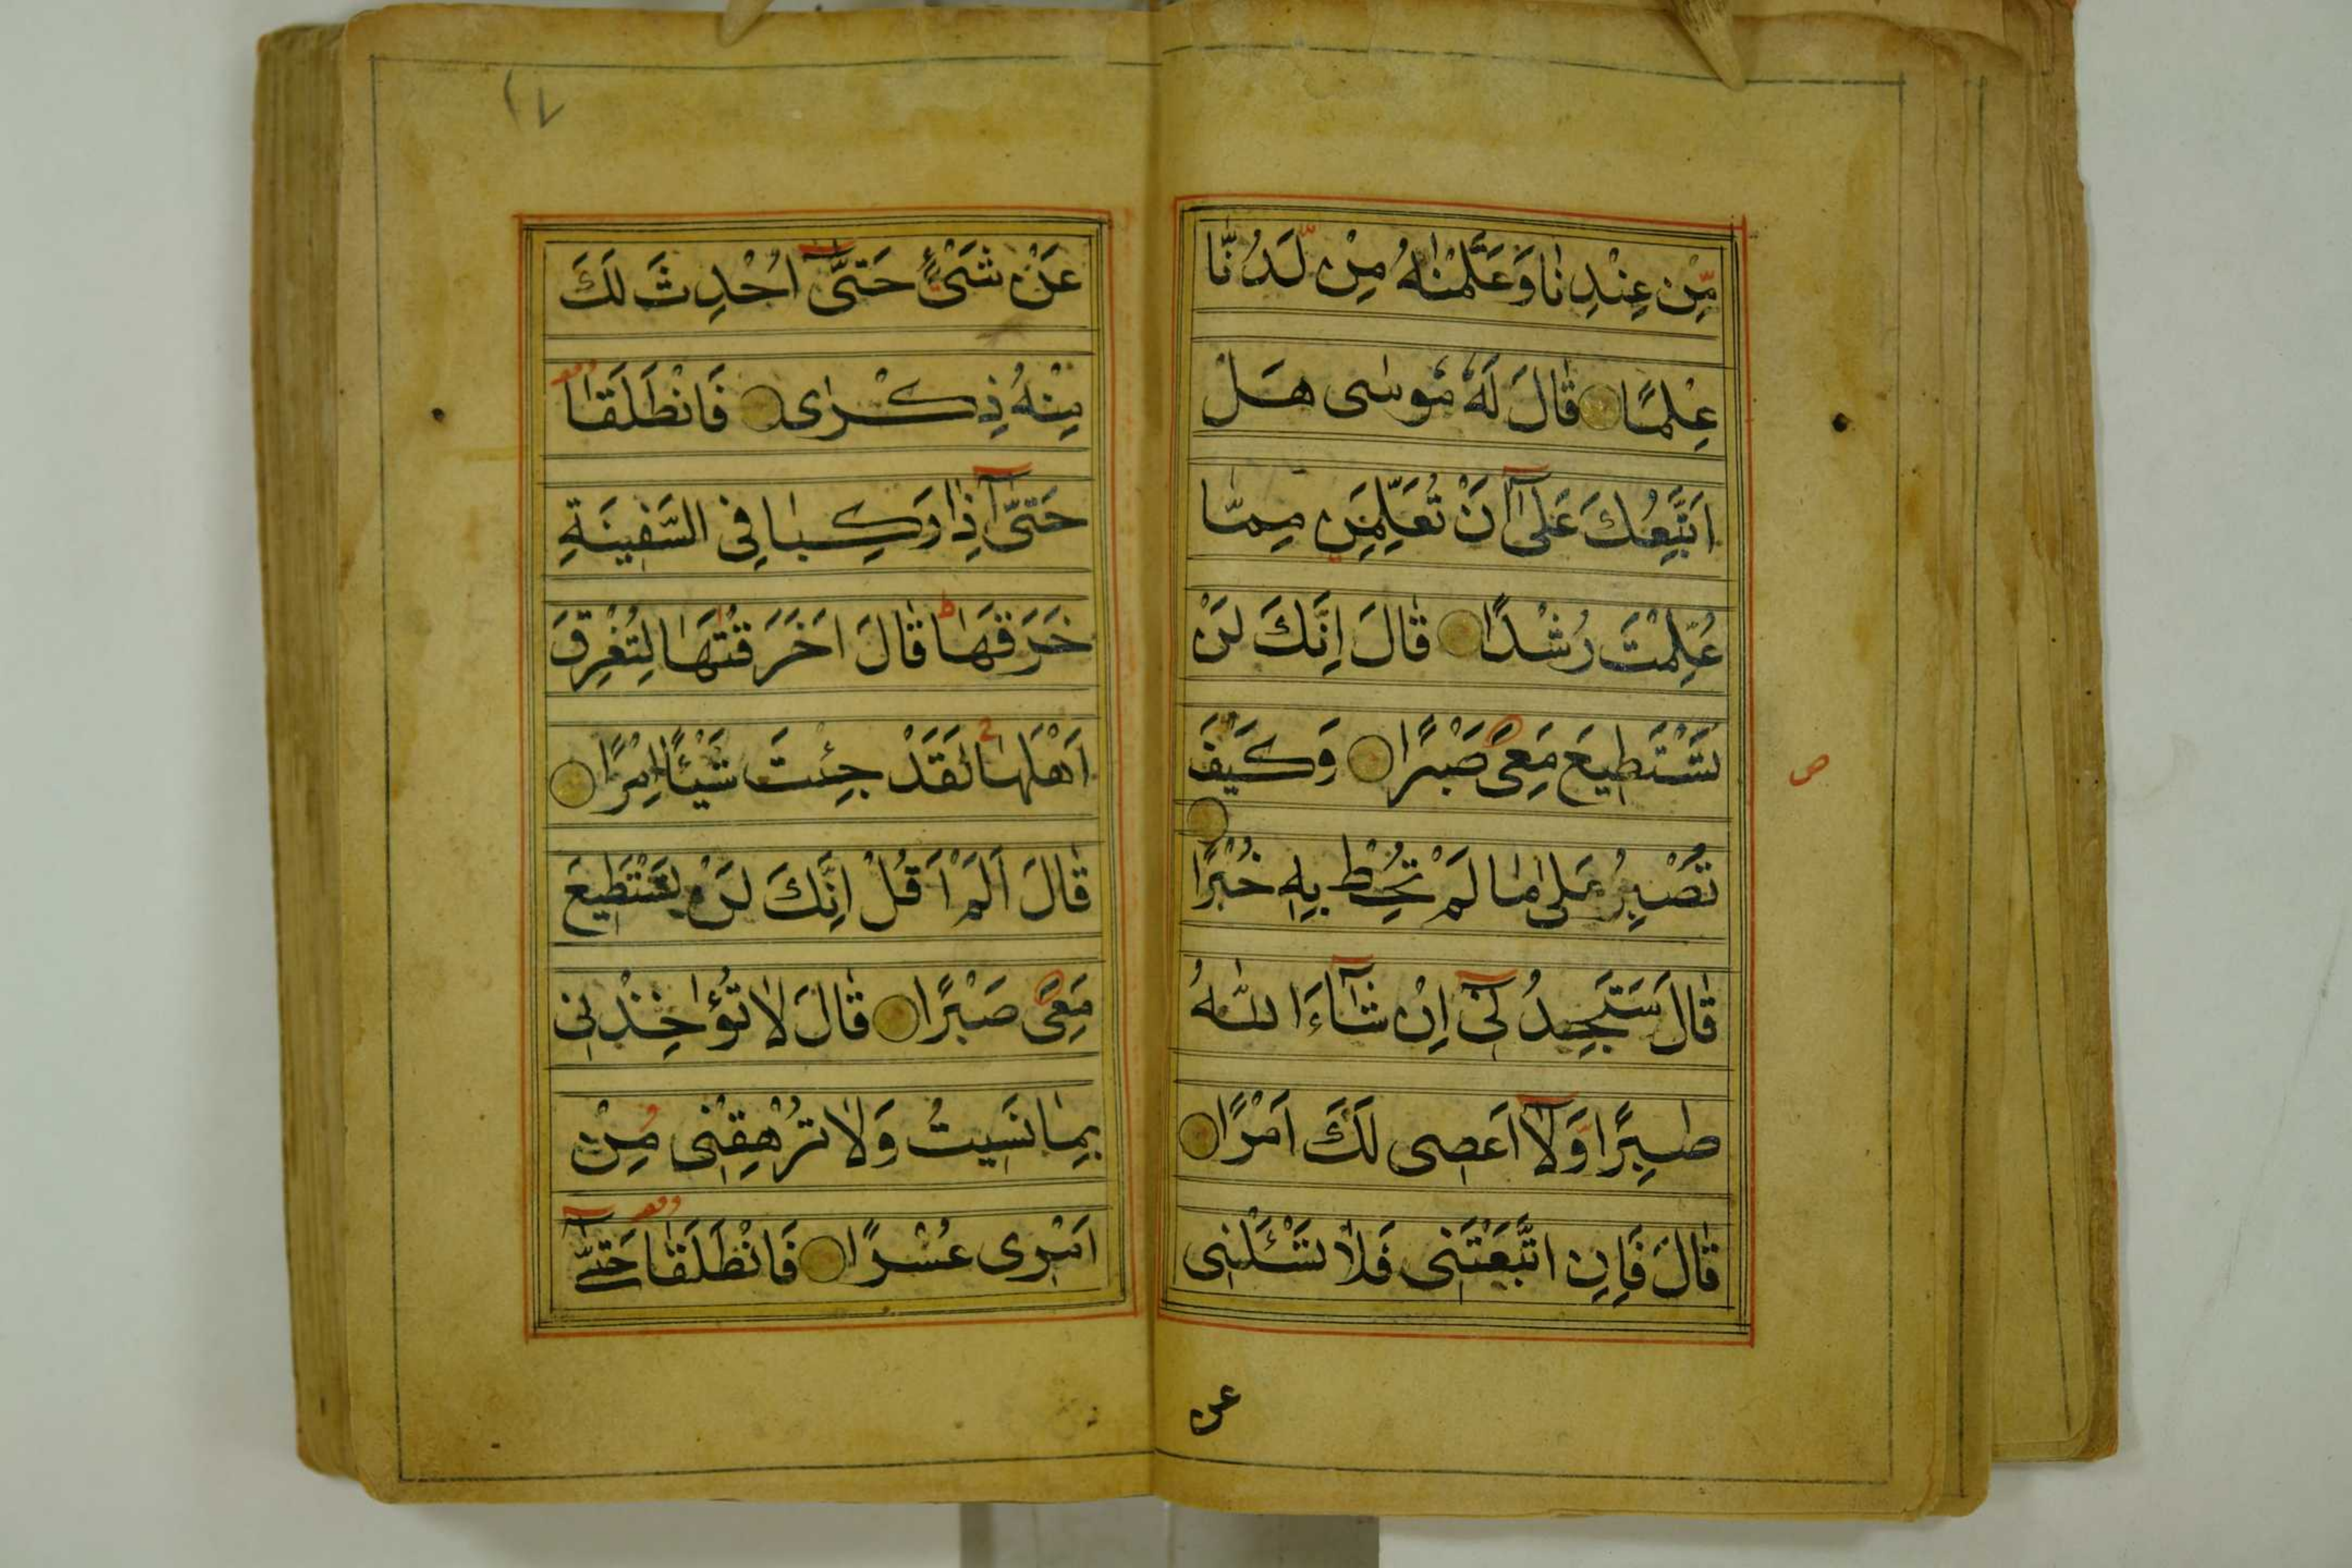 مِّنْ عِنْدِنٰا وَعَلَّمْنٰهُ مِنْ لَّدُنّٰا
عِلْمًا قٰالَ لَهٗ مُوسٰى هَلْ
اَتَّبِعُكَ عَلٰٓى اَنْ تُعَلِّمَنِ مِمّٰا
عُلِّمْتَ رُشْدًا قٰالَ اِنَّكَ لَنْ
تَسْتَطِيعَ مَعِىَ صَبْرًا وَكَيْفَ
تَصْبِرُ عَلٰى مٰا لَمْ تُحِطْ بِهٖ خُبْرًا
قٰالَ سَتَجِدُنِىٓ اِنْ شٰٓاءَ اللّٰهُ
صٰبِرًا وَّلٰٓا اَعْصِى لَكَ اَمْرًا
قٰالَ فَاِنِ اتَّبَعْتَنِى فَلٰا تَسْـَٔلْنِى
ص
عن
١٧
عَنْ شَىْءٍ حَتّٰىٓ اُحْدِثَ لَكَ
مِنْهُ ذِكْرٰى فَانْطَلَقٰا
حَتّٰىٓ اِذٰا رَكِبٰا فِى السَّفِينَةِ
خَرَقَهٰا قٰالَ اَخَرَقْتَهٰا لِتُغْرِقَ
اَهْلَهٰا لَقَدْ جِئْتَ شَيْئًا اِمْرًا
قٰالَ اَلَمْ اَقُلْ اِنَّكَ لَنْ تَسْتَطِيعَ
مَعِىَ صَبْرًا قٰالَ لٰا تُؤٰاخِذْنِى
بِمٰا نَسِيتُ وَلٰا تُرْهِقْنِى مِنْ
اَمْرِى عُسْرًا فَانْطَلَقٰا حَتّٰىٓ